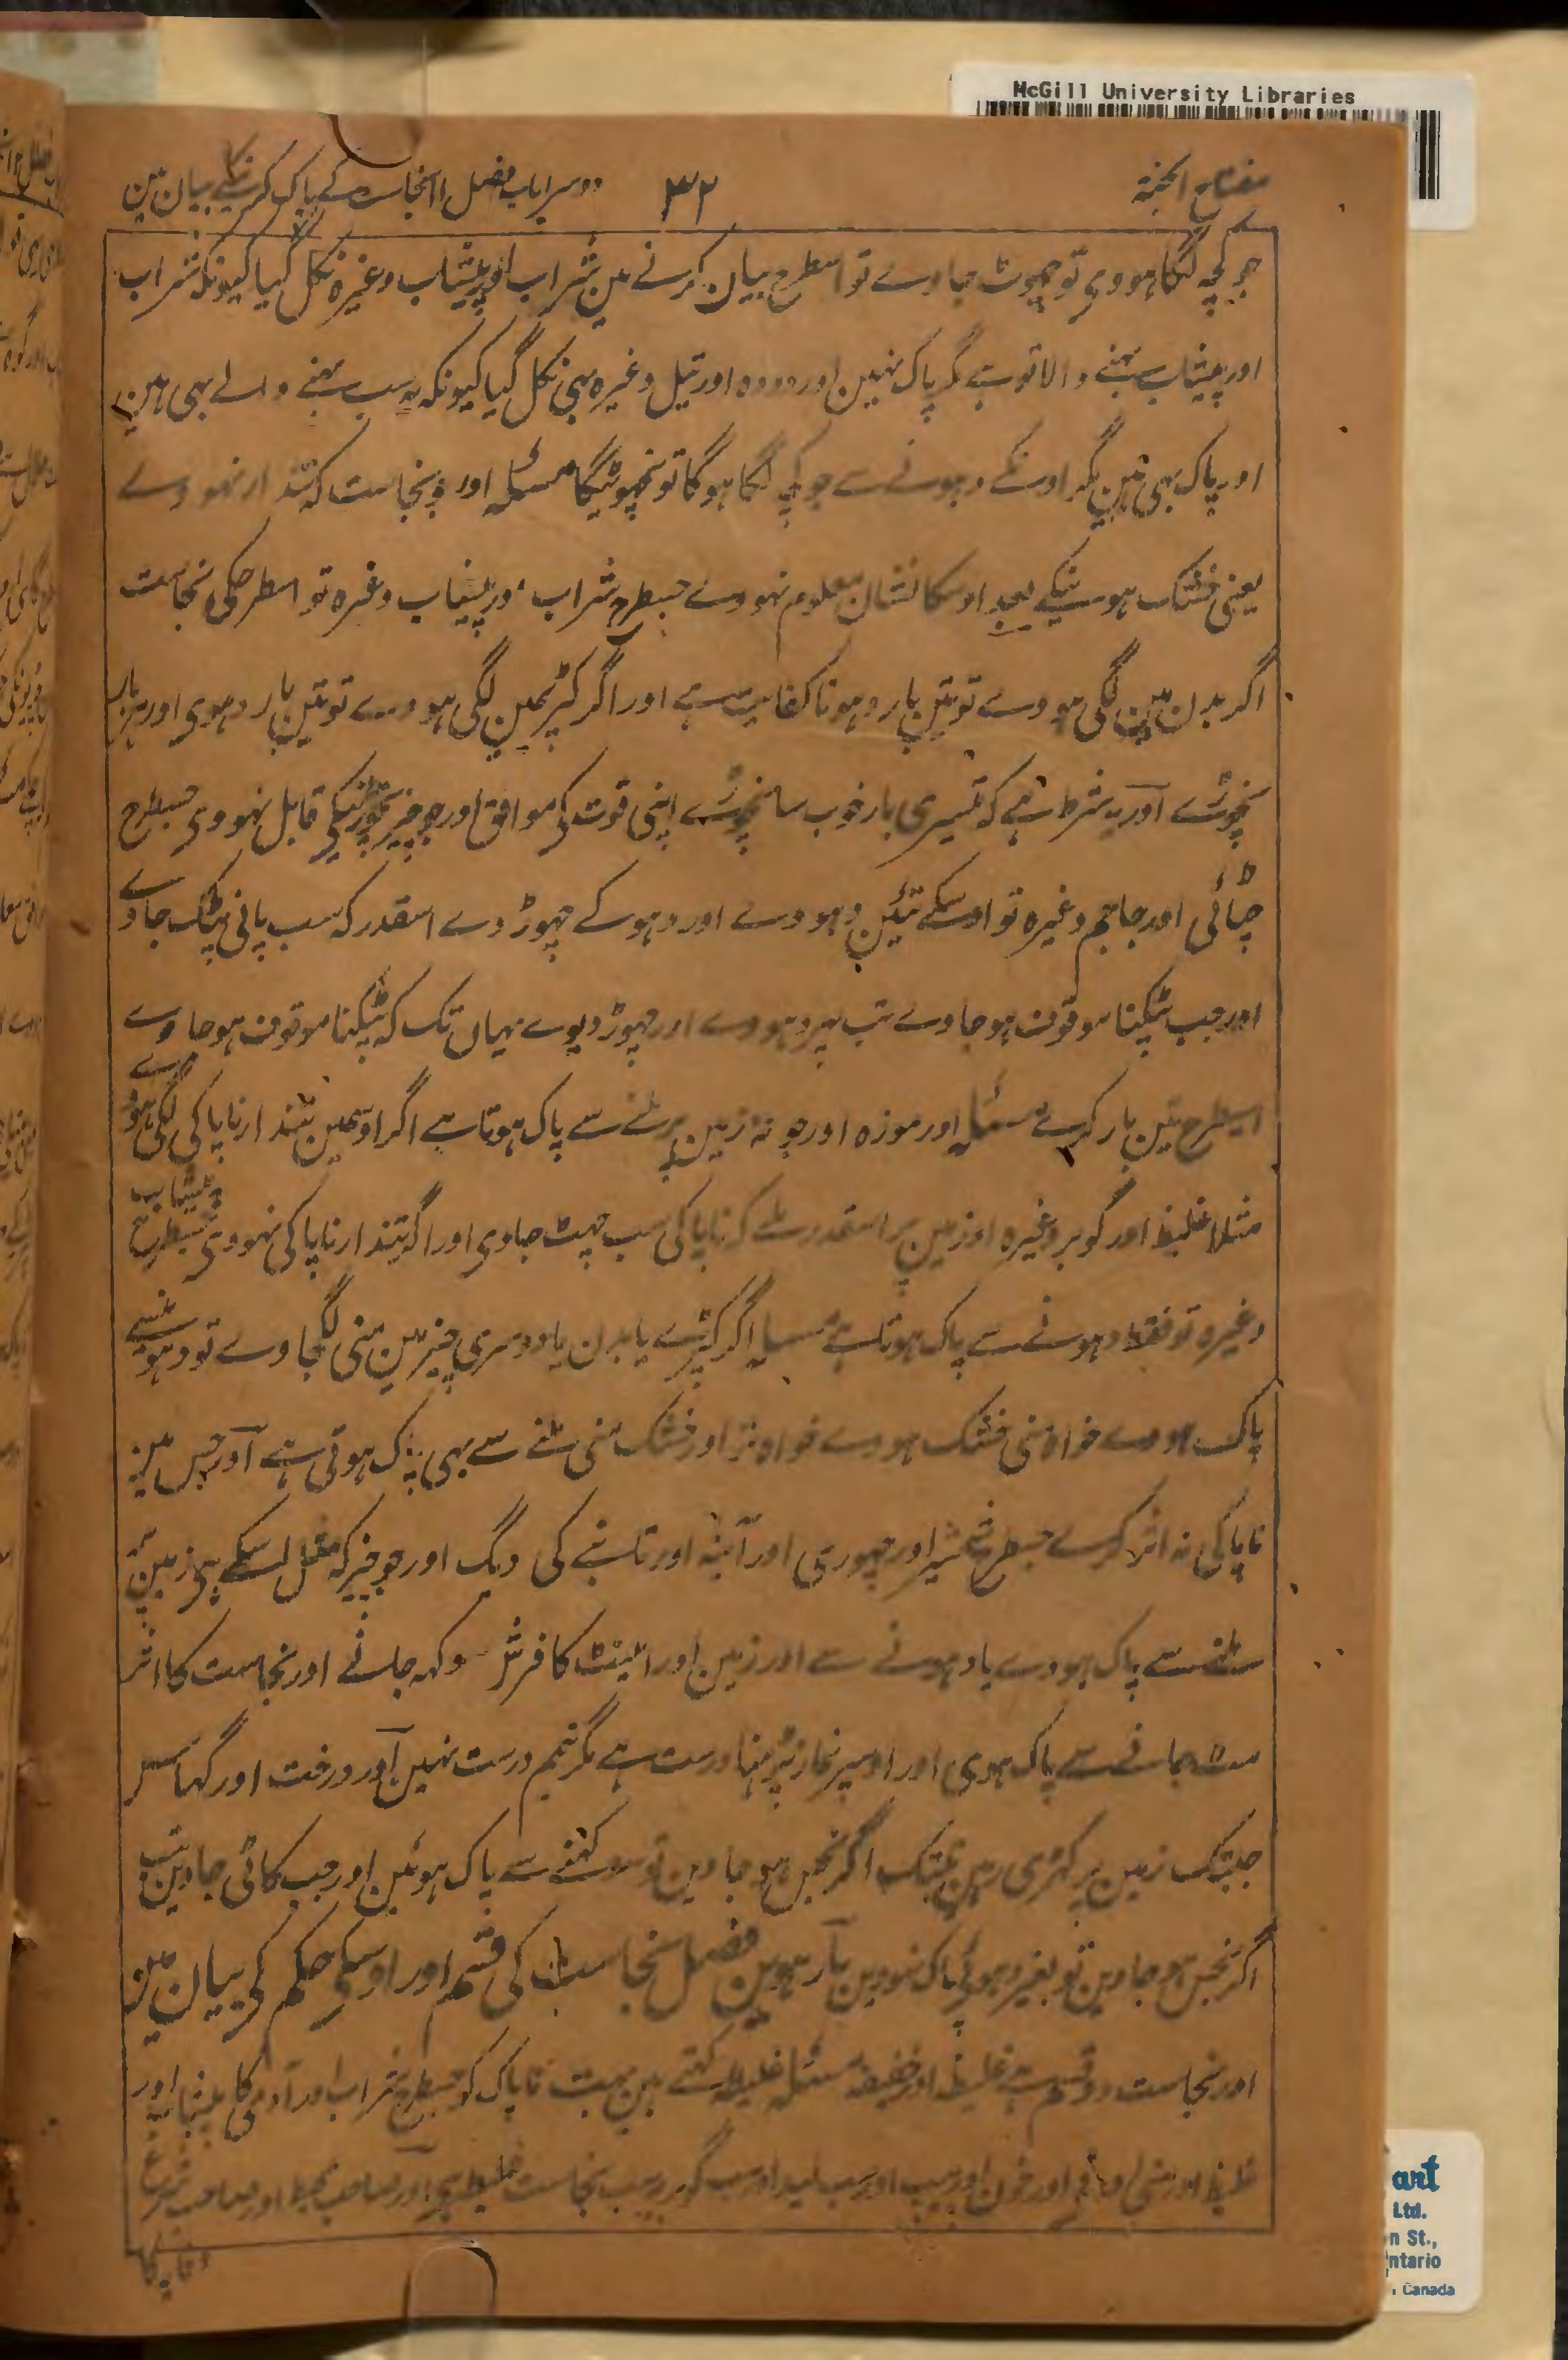 McGill University Libraries
مفتاح الجنۃ ۳۲ دوسرا باب فصل ۱۱ نجاست کے پاک کرنیکے بیان مین
جو کچہ لگا ہووی تو چھوٹ جاوے تو اسطرح بیان کرنے مین شراب اور پیشاب وغیرہ نکل گیا کیونکہ شراب
اور پیشاب بہنے والا تو ہے مگر پاک نہین اور دودہ اور تیل وغیرہ بہی نکل گیا کیونکہ یہ سب بہنے والے بہی ہین
اور پاک بہی ہین مگر اونکے دہونے سے جو کچہ لگا ہوگا تو نچھوٹیگا مسئلہ اور جو نجاست کہ تندار نہووے
یعنی خشک ہونیکے بعد اوسکا نشان معلوم نہووے جسطرح شراب اور پیشاب وغیرہ تو اسطرحکی نجاست
اگر بدن مین لگی ہووے تو تین بار دہونا کفایت ہے اور اگر کپڑیمین لگی ہووے تو تین بار دہوی اور ہر بار
نچوڑے اور یہ شرط ہے کہ تیسری بار خوب سا نچوڑے اپنی قوت کی موافق اور جو چیز نچوڑنیکی قابل نہووی جسطرح
چٹائی اور جاجم وغیرہ تو اوسکے تئین دہووے اور دہو کے چہوڑ دے اسقدر کہ سب پانی ٹپک جاوے
اور جب ٹپکنا موقوف ہوجاوے تب پہر دہووے اور چہوڑ دیوے یہاں تک کہ ٹپکنا موقوف ہوجاوے
اسطرح تین بار کرے مسئلہ اور موزہ اور جوتہ زمین پر ملنے سے پاک ہوتا ہے اگر اوسمین تندار ناپاکی لگی ہووے
مثلا غلیظ اور گوبر وغیرہ اور زمین پر اسقدر ملے کہ ناپاکی سب چہٹ جاوی اور اگر تندار ناپاکی نہووی جسطرح پیشاب
وغیرہ تو فقط دہونے سے پاک ہوتا ہے مسئلہ اگر کپڑے یا بدن یا دوسری چیز مین منی لگجاوے تو دہونیسے
پاک ہووے خواہ منی خشک ہووے خواہ تر اور خشک منی ملنے سے بہی پاک ہوتی ہے اور جس مین
ناپاکی نہ اثر کرے جسطرح شمشیر اور چہوری اور آئینہ اور تانبے کی دیگ اور جو چیز کہ مثل اسکے ہی زمین پر
ملنے سے پاک ہووے یا دہونے سے اور زمین اور اینٹ کا فرش سوکہہ جانے اور نجاست کا اثر
مٹ جانے سے پاک ہووی اور اوسپر نماز پڑہنا درست ہے مگر تیمم درست نہین اور درخت اور گہاس
جبتک زمین پر کہڑی رہین تبتک اگر نجس ہو جاوین تو سوکہنے سے پاک ہوئین اور جب کاٹی جاوین تب
اگر نجس ہو جاوین تو بغیر دہوئی پاک نہووین بارہوین فصل نجاست کی قسم اور اوسکی حکم کی بیان مین
اور نجاست دو قسم ہے غلیظہ اور خفیفہ مسئلہ غلیظہ کہتے ہین بہت ناپاک کو جسطرح شراب اور آدمی کا پیشاب اور
غلیظ اور منی اور خون اور پیپ اور سب لید اور سب گوبر یہ سب نجاست غلیظہ ہی اور صاحب محیط اور صاحب شرح
وقایہ کا
art
Ltd.
n St.,
ntario
, Canada